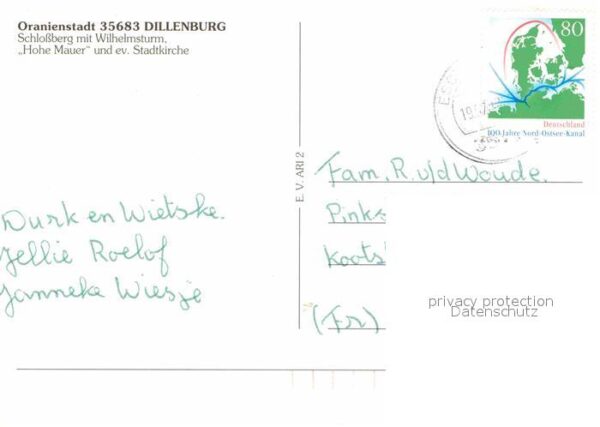 Oranienstadt 35683 DILLENBURG
Schloßberg mit Wilhelmsturm,
„Hohe Mauer" und ev. Stadtkirche
80
Deutschland
100 Jahre Nord-Ostsee-Kanal
E. V. ARI 2
Fam. R. v/d Woude.
Pink
Koots
(Fr)
Durk en Wietske.
Jellie Roelof
Janneke Wiesje
privacy protection
Datenschutz